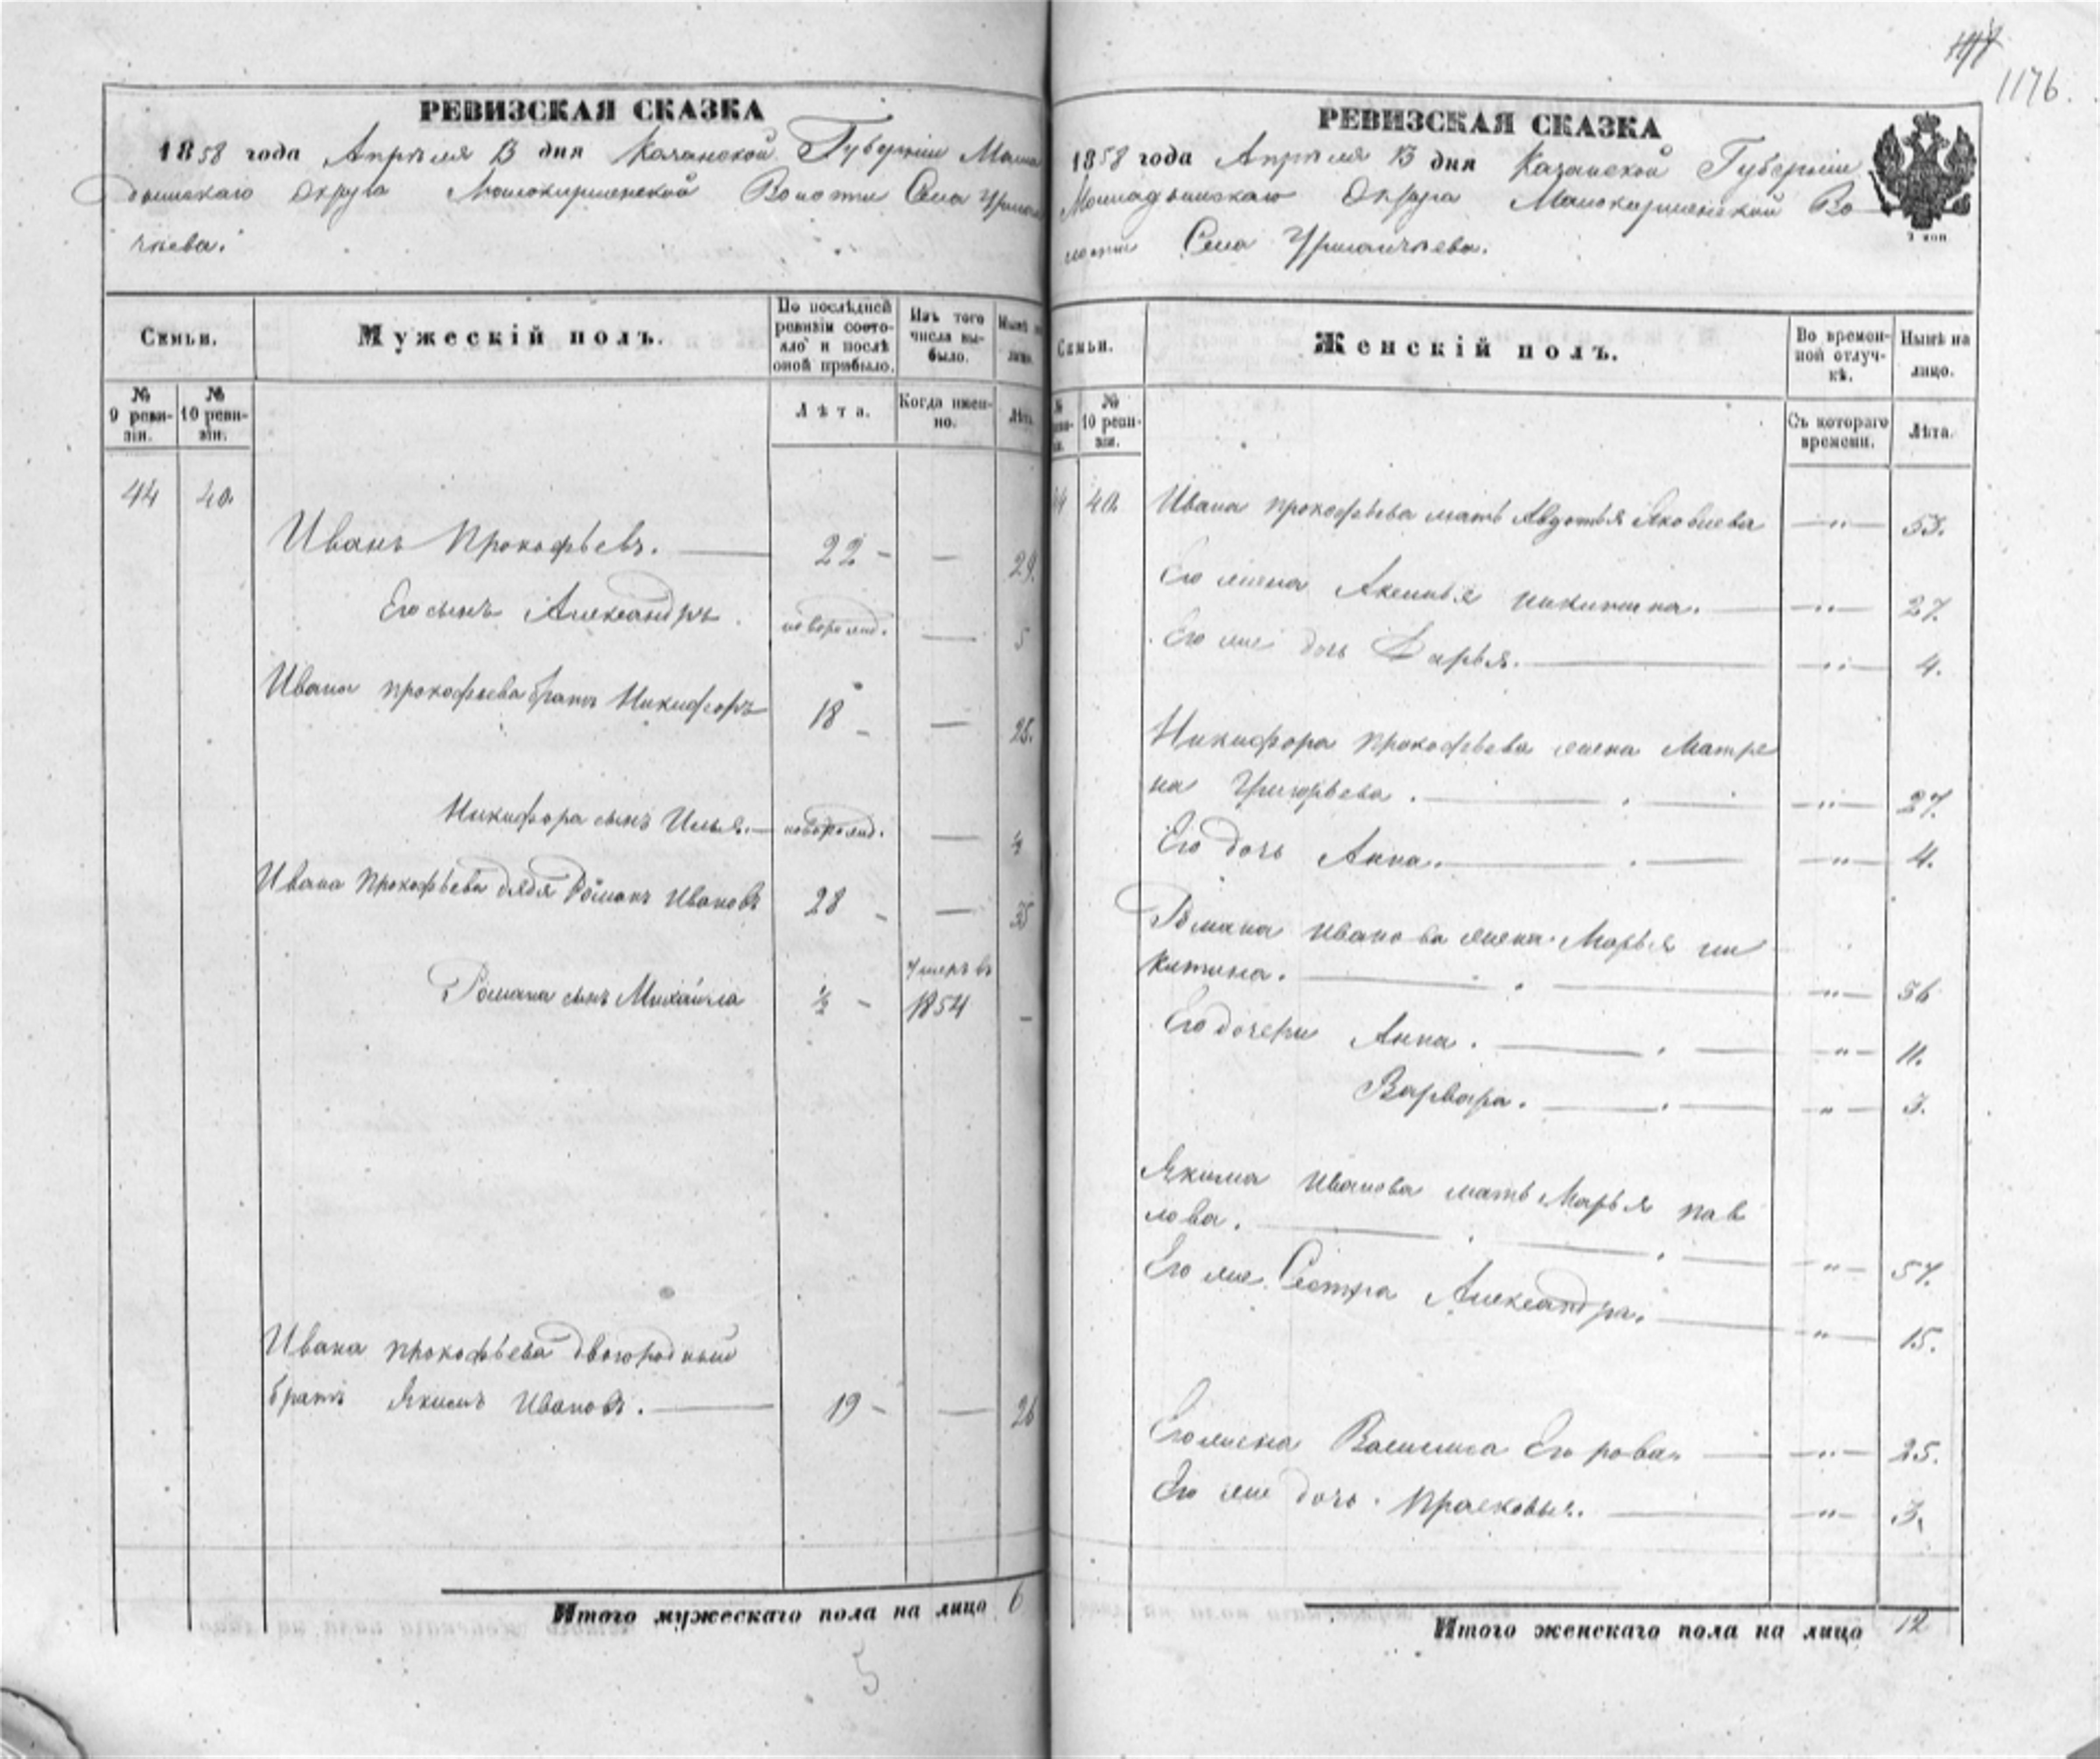 1176.
РЕВИЗСКАЯ СКАЗКА
1858 года Апрѣля 13 дня Казанской Губерніи Мама
дышскаго Округа Мамокирменской Волости Села Урман
чѣева.
Семьи.
Мужескій полъ.
По послѣдней ревизіи состо-
яло и послѣ
оной прибыло.
Изъ того
числа вы-
было.
Нынѣ на
лицо.
№
9 реви-
зіи.
№
10 реви-
зіи.
Лѣта.
Когда имен-
но.
Лѣта.
44 40.
Иванъ Прокофьевъ. 22 — 29.
Его сынъ Александръ. новорожд. — 5
Ивана Прокофьева братъ Никифоръ 18 — 25.
Никифора сынъ Илья. новорожд. —
Ивана Прокофьева дядя Романъ Ивановъ 28 — 35
Романа сынъ Михайла ½ умеръ въ
1854 —
Ивана Прокофьева двоюродный
братъ Якимъ Ивановъ. 19 — 26
Итого мужескаго пола на лицо 6
5
РЕВИЗСКАЯ СКАЗКА
1858 года Апрѣля 13 дня Казанской Губерніи
Мамадышскаго Округа Мамокирменской Во
лости Села Урманчѣева.
2 коп
Семьи.
Женскій полъ.
Во времен-
ной отлуч-
кѣ.
Нынѣ на
лицо.
№
10 реви-
зіи.
Съ котораго
времени.
Лѣта.
44 40.
Ивана Прокофьева мать Авдотья Яковлева — " — 53.
Его жена Аксинья Никитина. — " — 27.
Его же дочь Дарья. — " — 4.
Никифора Прокофьева жена Матре
на Григорьева. — " — 27.
Его дочь Анна. — " — 4.
Романа Иванова жена Марья Ни
китина. — " — 36
Его дочери Анна. — " — 11.
Варвара. — " — 3.
Якима Иванова мать Марья Пав
лова. — " — 57.
Его же Сестра Александра. — " — 15.
Его жена Василиса Егорова. — " — 25.
Его же дочь Прасковья. — " — 3.
Итого женскаго пола на лицо 12